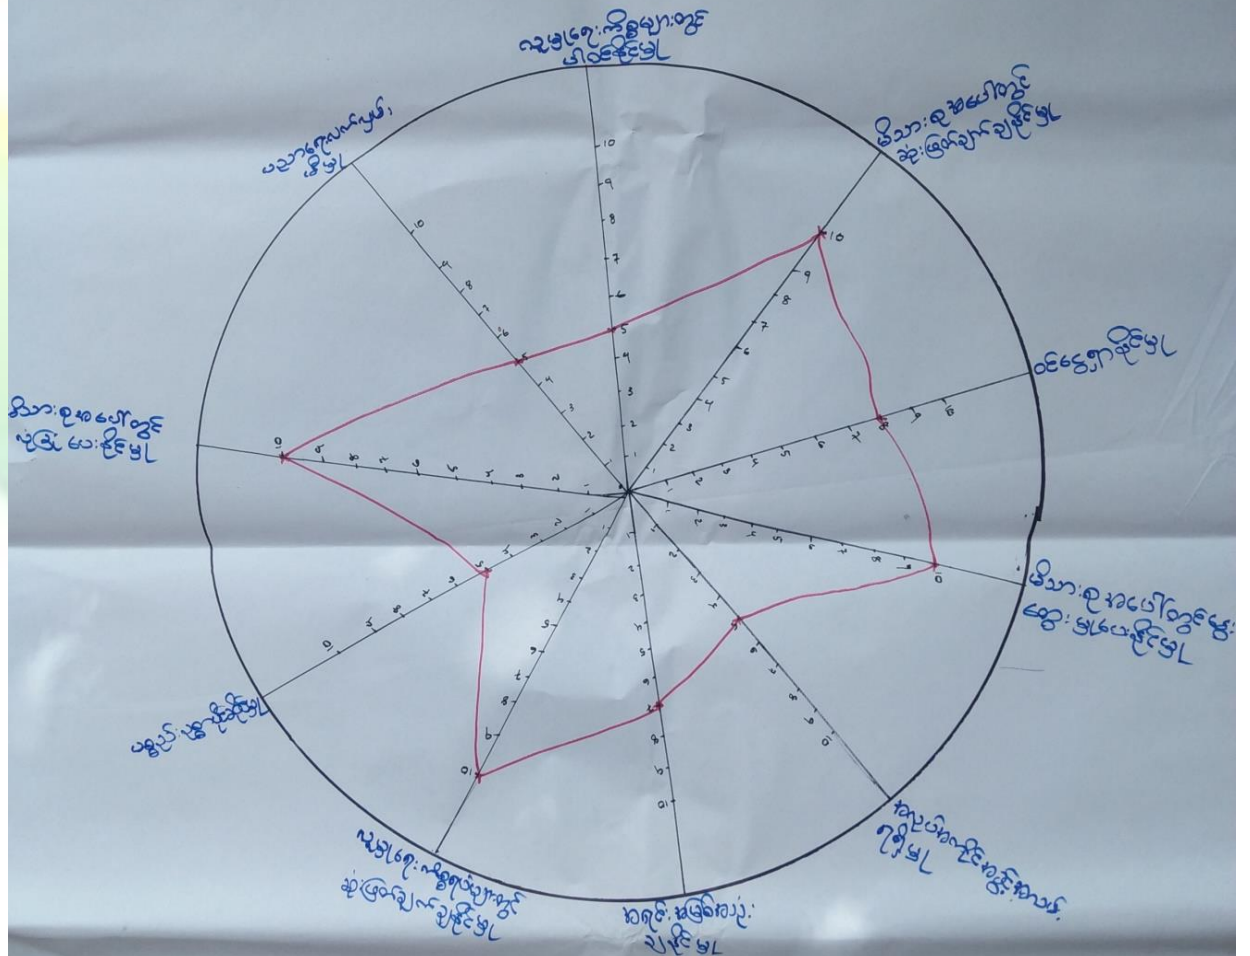 လူမှုရေးကိစ္စများတွင်
ပါဝင်နိုင်မှု
မိသားစုအပေါ်တွင်
ဆုံးဖြတ်ချက်ချနိုင်မှု
ဝင်ငွေရှာနိုင်မှု
မိသားစုအပေါ်တွင်ကျွေး
မွေးမှုပေးနိုင်မှု
ရရှိမှု
ချနိုင်မှု
လူမှုရေးကိစ္စရပ်များတွင်
ဆုံးဖြတ်ချက်ချနိုင်မှု
ပစ္စည်းဥစ္စာပိုင်ဆိုင်မှု
မိသားစုအပေါ်တွင်
လုံခြုံပေးနိုင်မှု
ပညာရေးလက်လှမ်း
မှီမှု
1 2 3 4 5 6 7 8 9 10
1 2 3 4 5 6 7 8 9 10
1 2 3 4 5 6 7 8 9 10
1 2 3 4 5 6 7 8 9 10
1 2 3 4 5 6 7 8 9 10
1 2 3 4 5 6 7 8 9 10
1 2 3 4 5 6 7 8 9 10
1 2 3 4 5 6 7 8 9 10
1 2 3 4 5 6 7 8 9 10
1 2 3 4 5 6 7 8 9 10